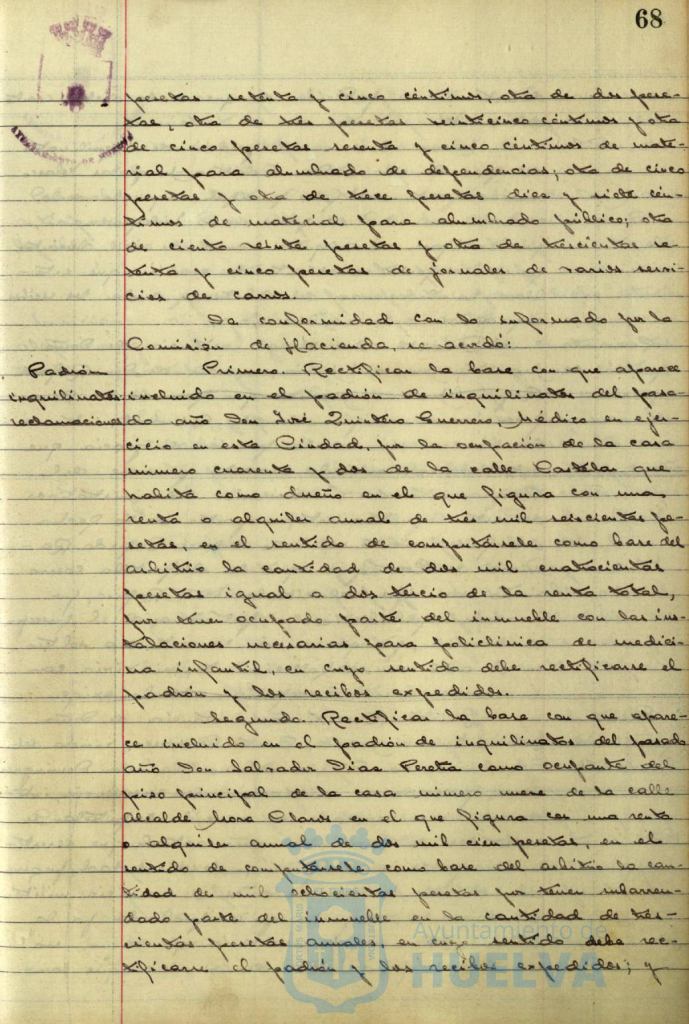 68
pesetas setenta y cinco céntimos, otra de dos pese-
tas, otra de tres pesetas veinticinco céntimos y otra
de cinco pesetas sesenta y cinco céntimos de mate-
rial para alumbrado de dependencias; otra de cinco
pesetas y otra de trece pesetas diez y siete cén-
timos de material para alumbrado público; otra
de ciento veinte pesetas y otra de trescientas se-
tenta y cinco pesetas de jornales de varios servi-
cios de carros.
De conformidad con lo informado por la
Comisión de Hacienda, se acordó:
Padrón
inquilinatos
reclamaciones
Primero. Rectificar la base con que aparece
incluido en el padrón de inquilinatos del pasa-
do año Don José Quintero Guerrero, Médico en ejer-
cicio en esta Ciudad, por la ocupación de la casa
número cuarenta y dos de la calle Castelar que
habita como dueño en el que figura con una
renta o alquiler annal de tres mil seiscientas pe-
setas, en el sentido de computársele como base del
arbitrio la cantidad de dos mil cuatrocientas
pesetas igual a dos tercio de la renta total,
por tener ocupado parte del inmueble con las ins-
talaciones necesarias para policlínica de medici-
na infantil, en cuyo sentido debe rectificarse el
padrón y los recibos expedidos.
Segundo. Rectificar la base con que apare-
ce incluido en el padrón de inquilinatos del pasado
año Don Salvador Díaz como ocupante del
piso principal de la casa número nueve de la calle
Alcalde Mora Claros en el que figura con una renta
o alquiler annal de dos mil cien pesetas, en el
sentido de computársele como base del arbitrio la can-
tidad de mil ochocientas pesetas por tener subarren-
dado parte del inmueble en la cantidad de tres-
cientas pesetas annales, en cuyo sentido debe rec-
tificarse el padrón y los recibos expedidos; y
Ayuntamiento de
HUELVA